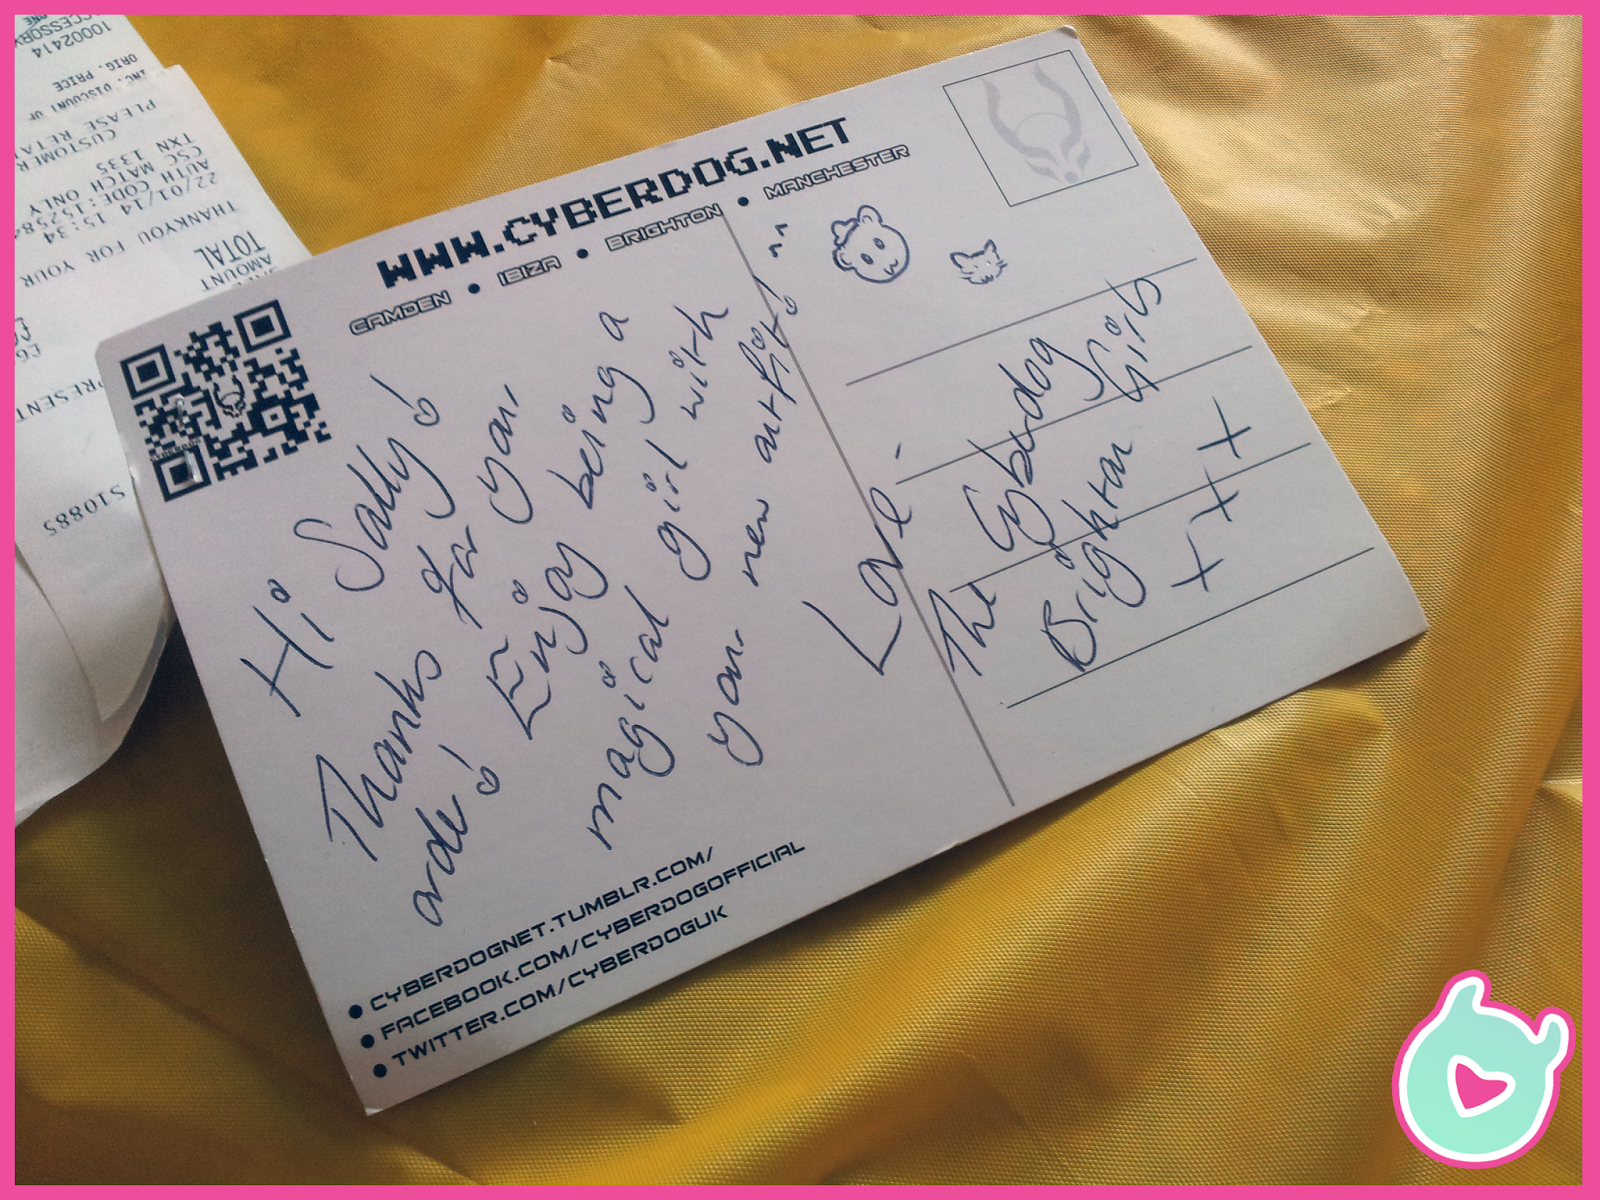 WWW.CYBERDOG.NET
CAMDEN • IBIZA • BRIGHTON • MANCHESTER
Hi Sally!
Thanks for your
order! Enjoy being a
magical girl with
your new outfit! ^^
Love -
The Cyberdog Girls
Brighton
x x x
• CYBERDOGNET.TUMBLR.COM/
• FACEBOOK.COM/CYBERDOGOFFICIAL
• TWITTER.COM/CYBERDOGUK
10002414
ORIG. PRICE
INC. DISCOUNT OF
PLEASE RETAI
CUSTOMER
TXN 1335
CSC MATCH ONLY
AUTH CODE:15258
22/01/14 15:34
THANKYOU FOR YOUR
TOTAL
AMOUNT
PRESENT
S10885